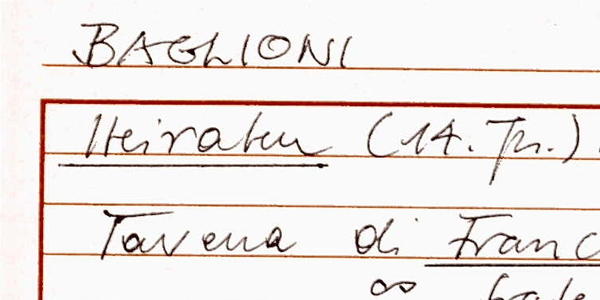 BAGLIONI
Heiraten (14. Jh.)
Tavena di Franc
∞